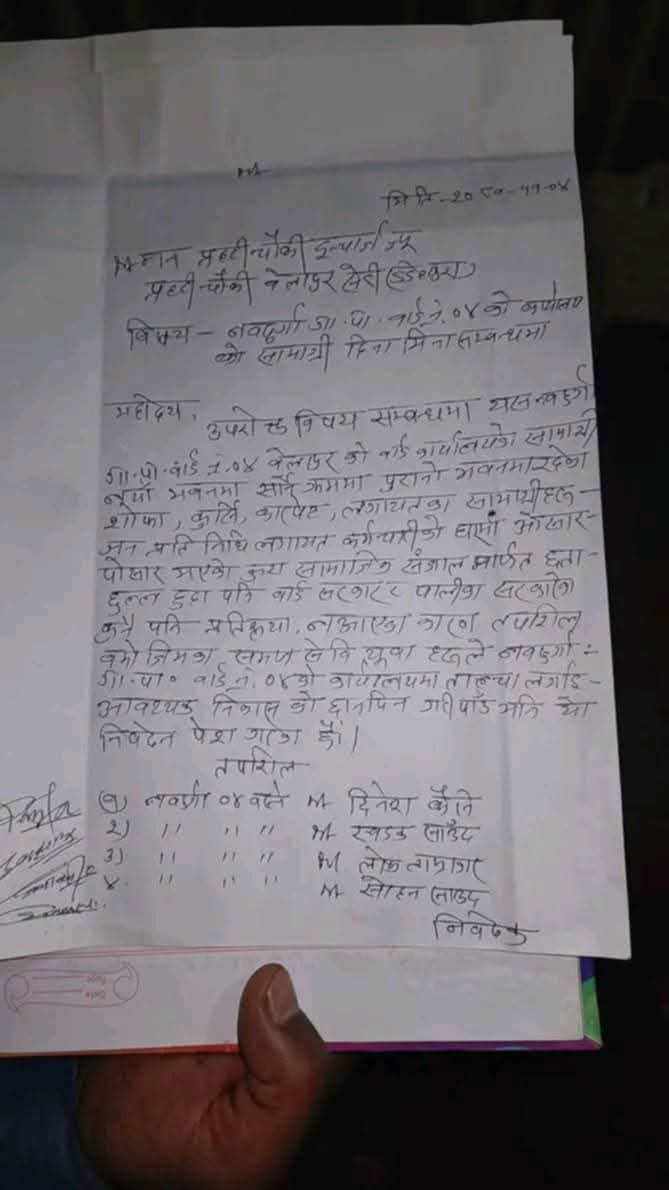 मिति-२०८०-११-०४
श्रीमान प्रहरी चौकी इन्चार्ज ज्यू
प्रहरी चौकी बेलापुर डडेल्धुरा
विषय - नवदुर्गा गा.पा. वार्ड नं. ०४ को कार्यालय
को सामाग्री हिना मिना सम्बन्धमा
महोदय,
उपरोक्त विषय सम्बन्धमा यस नवदुर्गा
गा.पा. वार्ड नं. ०४ बेलापुर को वार्ड कार्यालयका सामाग्री
नयाँ भवनमा सार्ने क्रममा पुरानो भवनमा रहेका
सोफा, कुर्सि, कारपेट, लगायतका सामाग्रीहरु
जन प्रति निधि लगायत कर्मचारीको घरमा ओसार-
पोसार भएको कुरा सामाजिक संजाल मार्फत छता-
छुल्ल हुदा पनि वार्ड सरकार र पालीका सरकारले
कुनै पनि प्रतिकृया नआएका कारण तपशिल
बमोजिमका समाज सेवि युवा हरुले नवदुर्गा
गा.पा. वार्ड नं. ०४ को कार्यालयमा ताल्चा लगाई-
आवश्यक निकास को छानविन गरी पाँउ भनि यो
निवेदन पेश गरेका छौं।
तपशिल
१) नवदुर्गा ०४ बस्ने श्री दिनेश
२) " " " श्री साउँद
३) " " " श्री लोक
४. " " " श्री साउँद
निवेदक